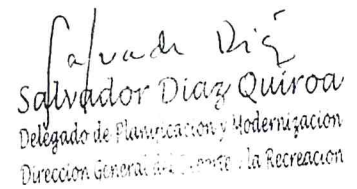 Salvador Diaz Quiroa
Delegado de Planificacion y Modernizacion
Direccion General del la Recreacion